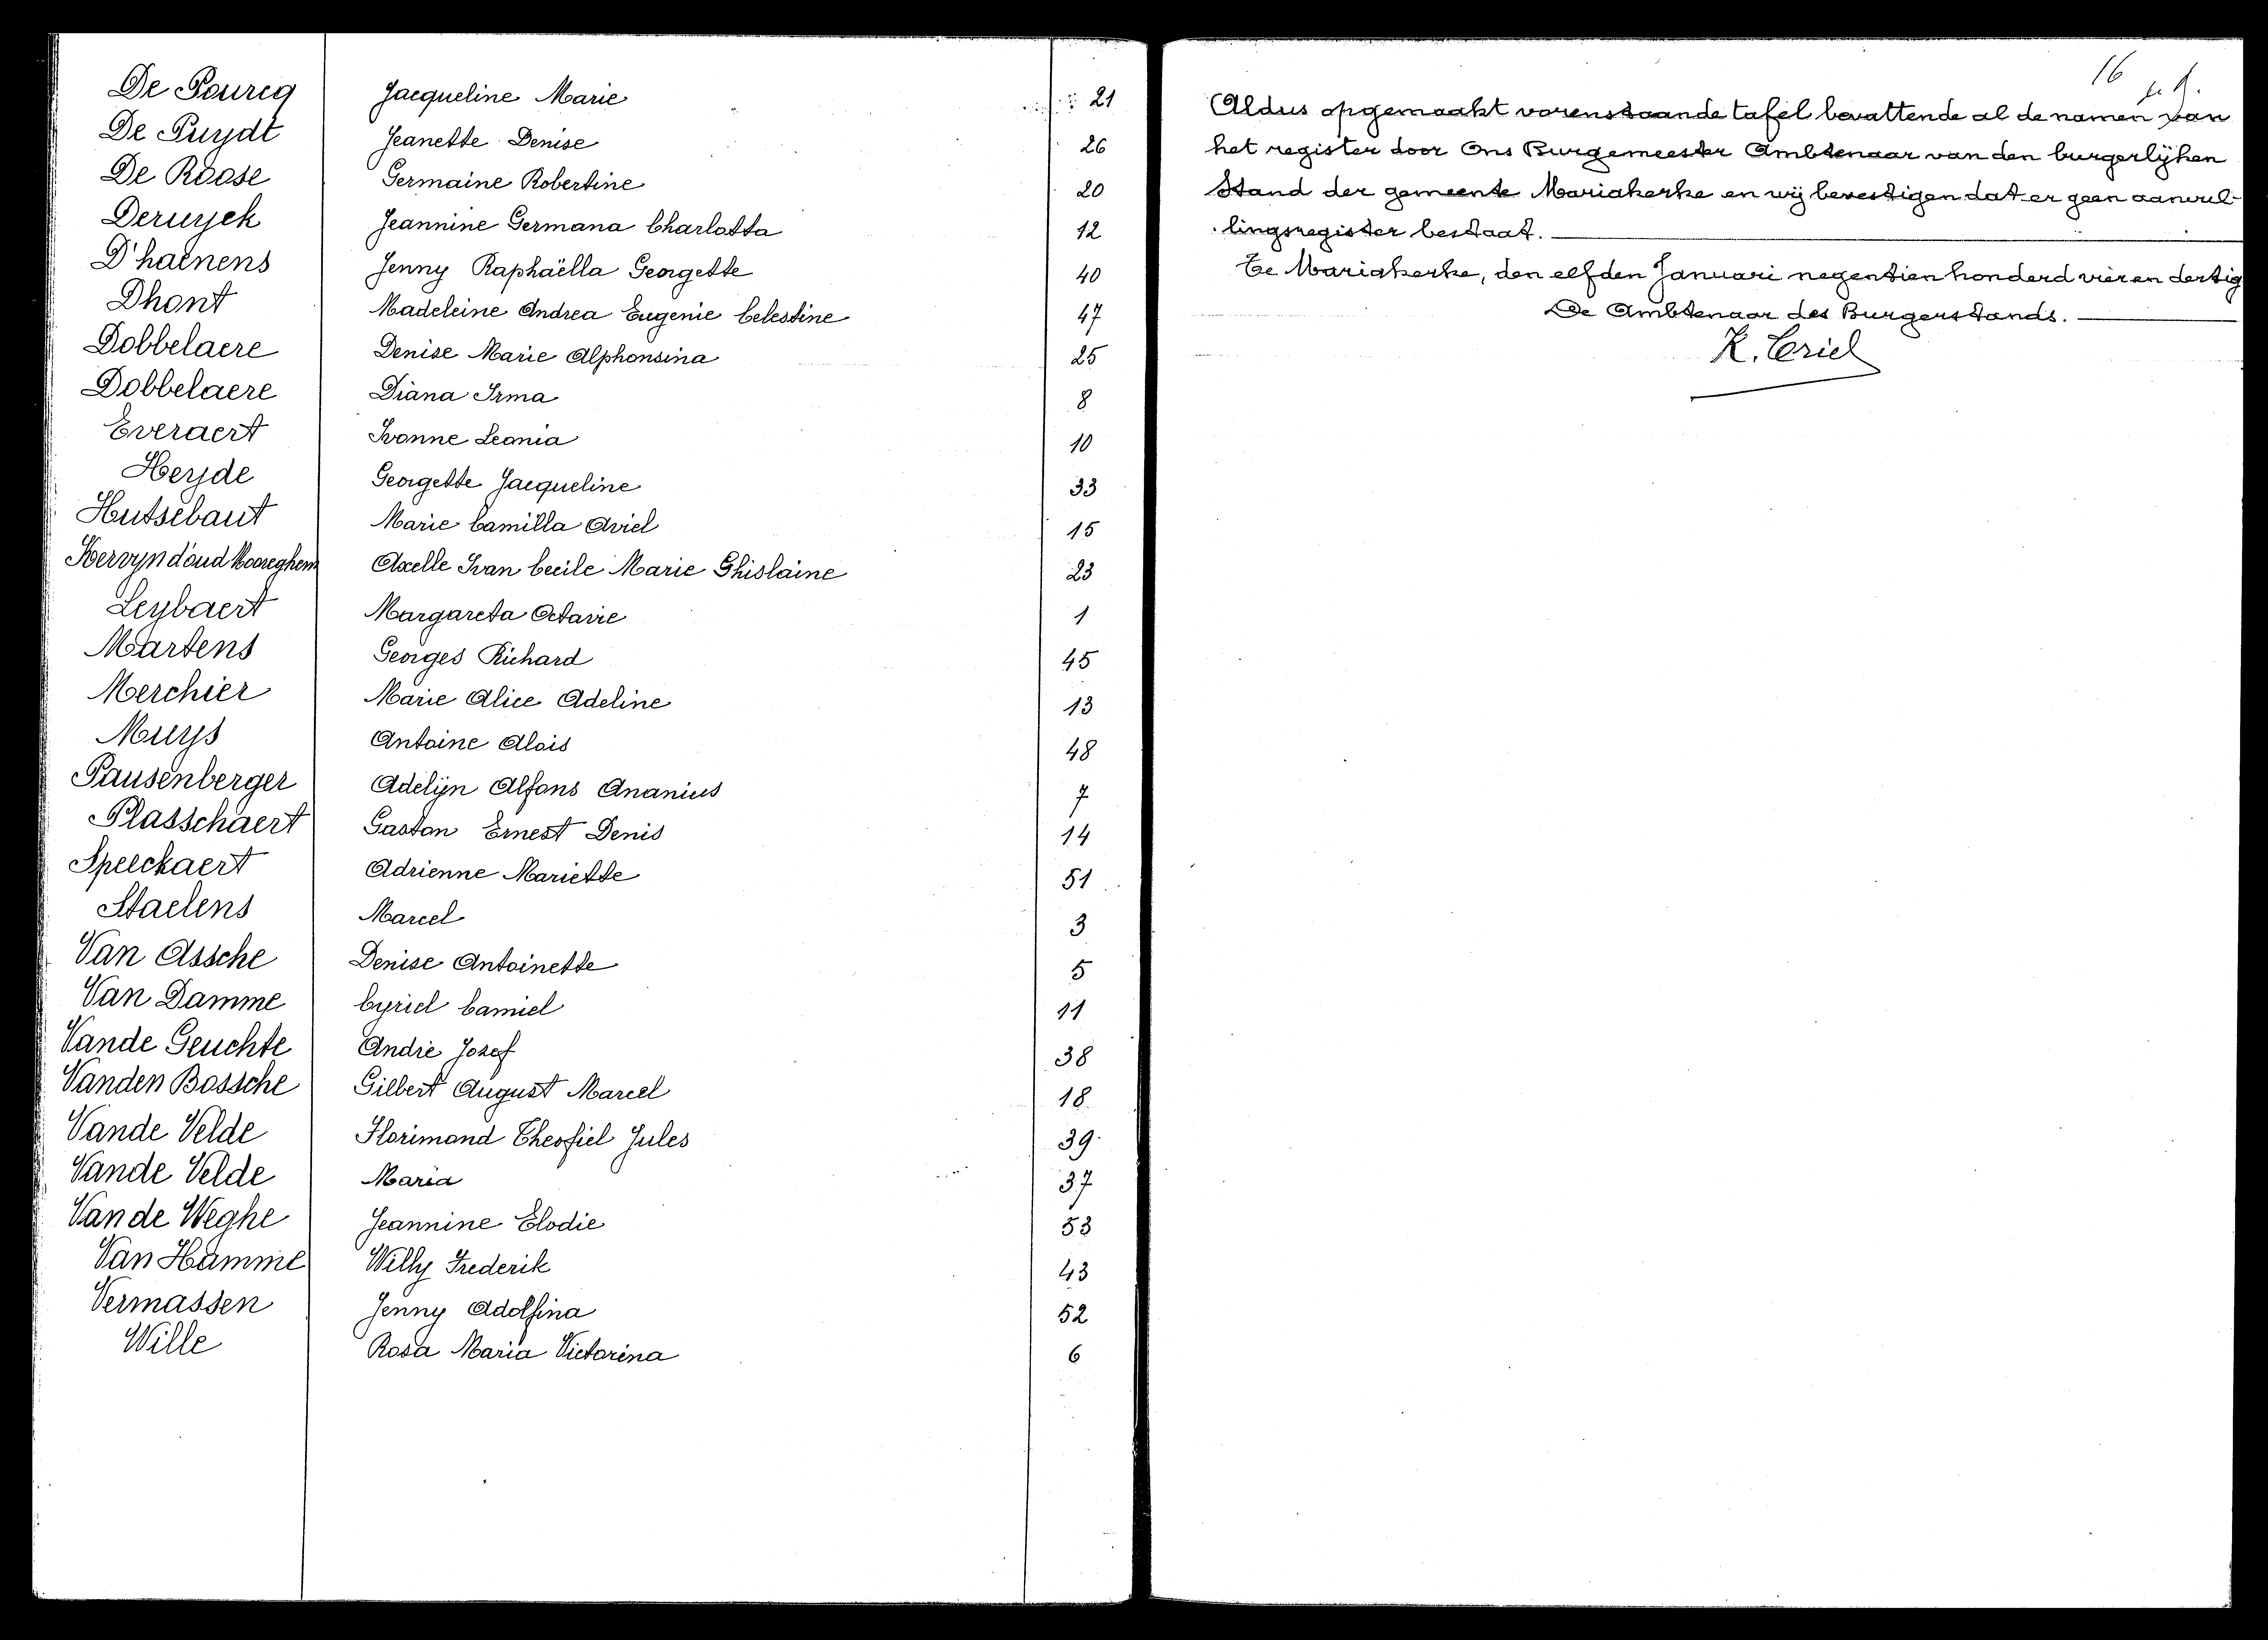 De Pourcq Jacqueline Marie 21
De Puydt Jeanette Denise 26
De Roose Germaine Robertine 20
Deruyck Jeannine Germana Charlotta 12
D'haenens Jenny Raphaëlla Georgette 40
Dhont Madeleine Andrea Eugenie Celestine 47
Dobbelaere Denise Marie Alphonsina 25
Dobbelaere Diana Irma 8
Everaert Ivonne Leonia 10
Heyde Georgette Jacqueline 33
Hutsebaut Marie Camilla Aviel 15
Kervyn d'oud Mooreghem Axelle Ivan Cecile Marie Ghislaine 23
Leybaert Margareta Octavie 1
Martens Georges Richard 45
Merchier Marie Alice Adeline 13
Muys Antoine Alois 48
Pausenberger Adelijn Alfons Ananius 7
Plasschaert Gaston Ernest Denis 14
Speeckaert Adrienne Mariette 51
Staelens Marcel 3
Van Assche Denise Antoinette 5
Van Damme Cyriel Camiel 11
Vande Geuchte André Jozef 38
Vanden Bossche Gilbert August Marcel 18
Vande Velde Florimond Theofiel Jules 39
Vande Velde Maria 37
Van de Weghe Jeannine Elodie 53
Van Hamme Willy Frederik 43
Vermassen Jenny Adolfina 52
Wille Rosa Maria Victorina 6
16
Aldus opgemaakt vorenstaande tafel bevattende al de namen van
het register door Ons Burgemeester Ambtenaar van den burgerlijken
Stand der gemeente Mariakerke en wij bevestigen dat er geen aanvul-
lingsregister bestaat.
Te Mariakerke, den elfden Januari negentien honderd vier en dertig
De Ambtenaar des Burgerstands.